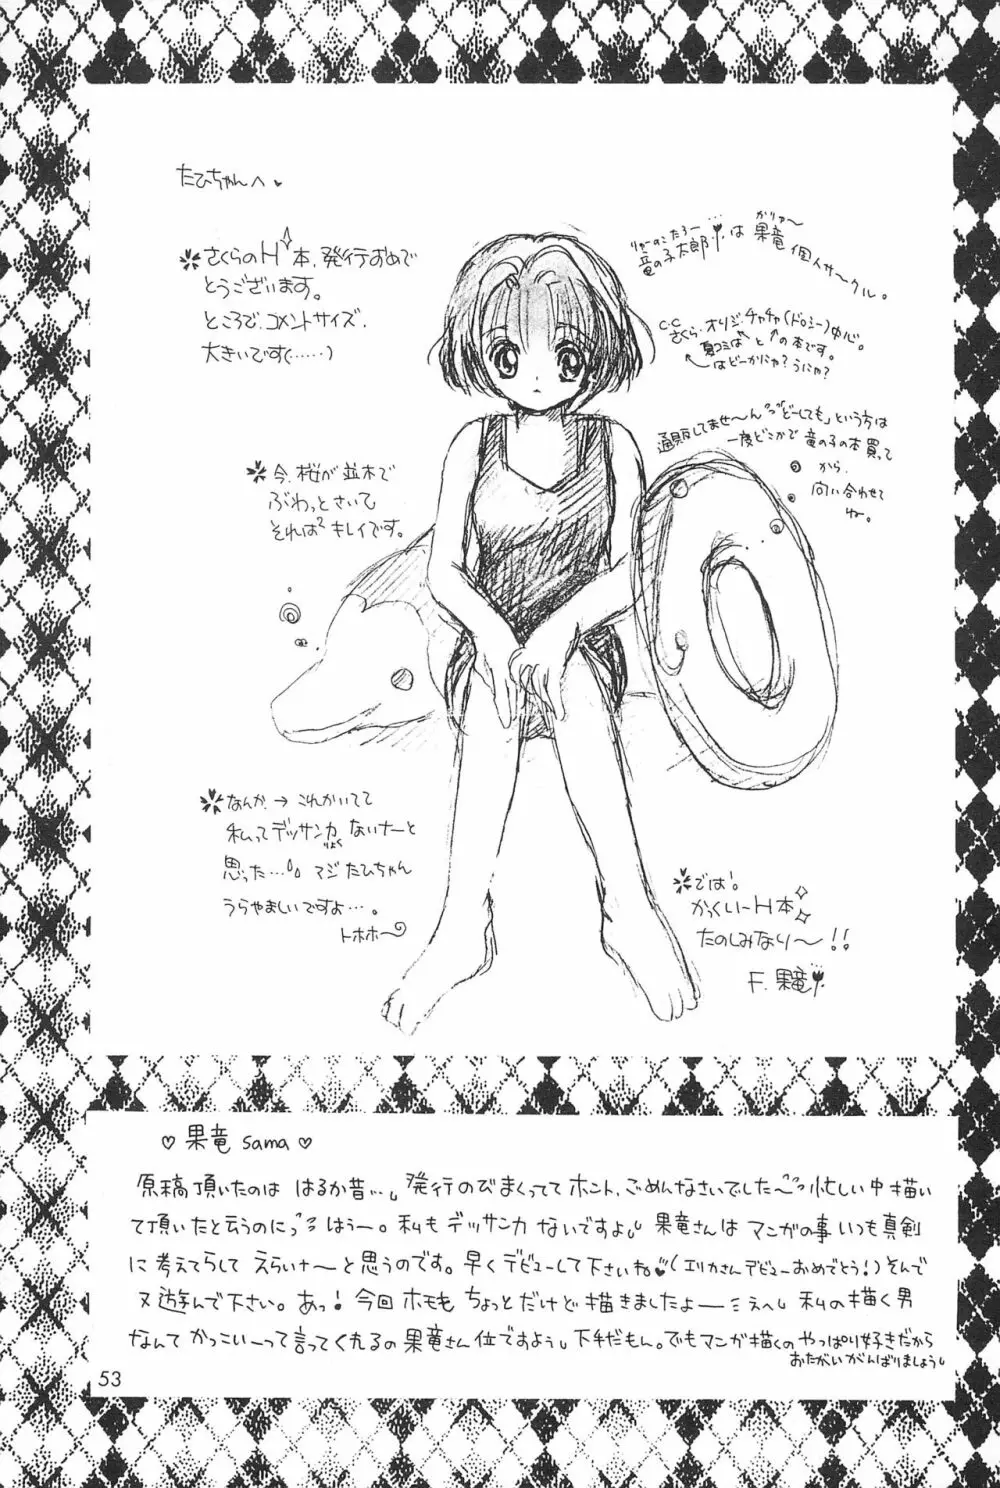 たひちゃんへ♥
さくらのH本、発行おめで
とうございます。
ところで、コメントサイズ、
大きいです(……)
りゅーのこたろー
竜の子太郎は
かりゅ〜
果竜個人サークル。
C.C
さくら、オリジ、チャチャ(ドロシー)中心。
夏コミは と↑の本です。
はどーかにゃ?うにゃ?
通販してませ〜ん
「どーしても」という方は
一度どこかで竜の子の本買って
から、
問い合わせて
ね。
今、桜が並木で
ぶわっとさいて
それは²キレイです。
なんか→これかいてて
私ってデッサンカ
りょく
ないナーと
思った…。マジたひちゃん
うらやましいですよ…。
トホホ〜
では!
かっくいーH本
たのしみなり〜!!
F.果竜
♡果竜sama♡
原稿頂いたのは はるか昔…、発行のびまくっててホント、ごめんなさいでした〜 忙しい中描い
て頂いたと云うのに はぅー。私もデッサンカないですよ。果竜さんはマンガの事いつも真剣
に考えてらしてえらいナ〜と思うのです。早くデビューして下さいね♥(エリカさんデビューおめでとう!)そんで
又遊んで下さい。あっ!今回ホモもちょっとだけど描きましたよーミえへ。私の描く男
なんてかっこいーって言ってくれるの果竜さん位ですよぅ。下手だもん。でもマンガ描くのやっぱり好きだから
おたがいがんばりましょう。
53